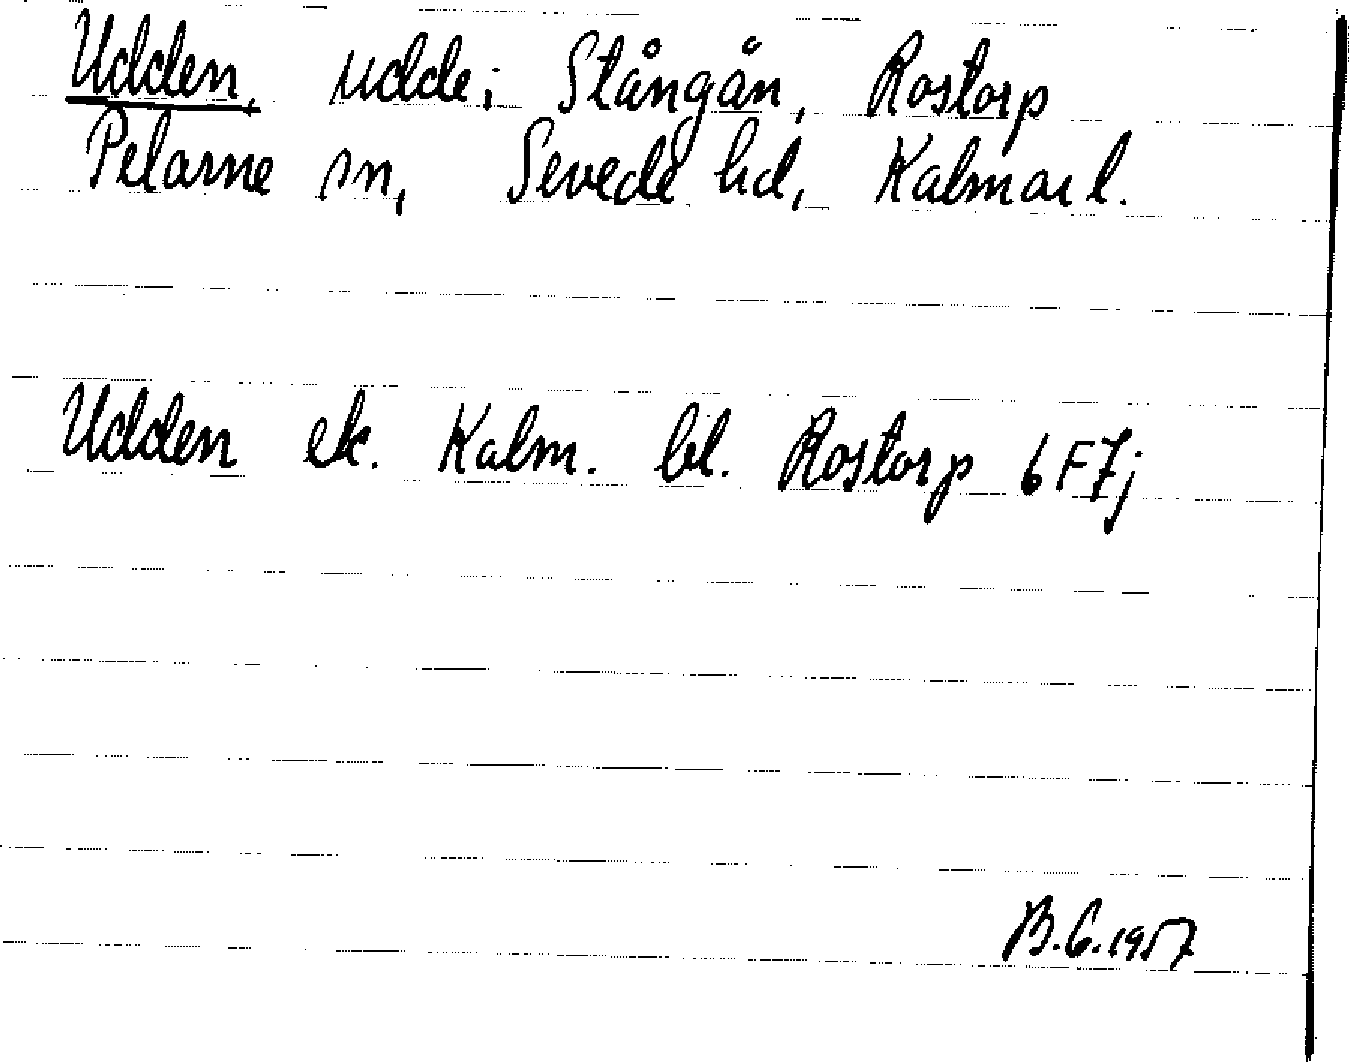 Udden, udde i Stångån, Rostorp
Pelarne sn, Sevede hd, Kalmar l.
Udden ek. Kalm. bl. Rostorp 6F7j
B.G. 1957